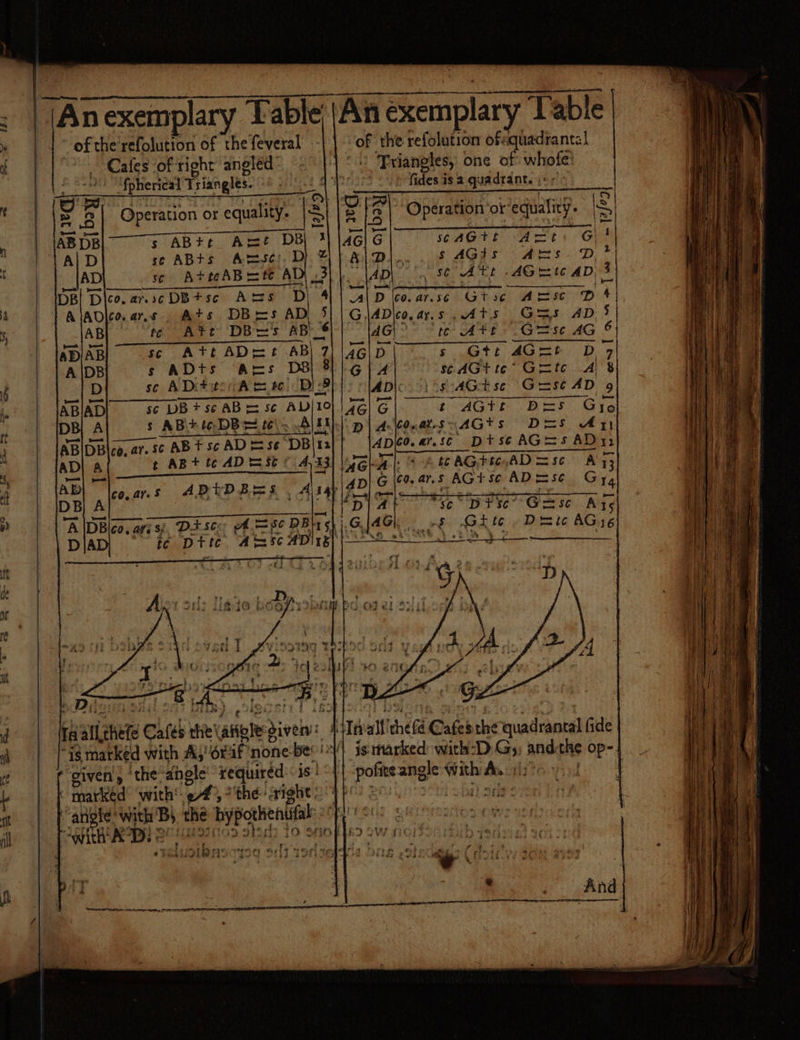 An exemplary Table
of the resolution of the several
Cases of right angled
spherical Triangles.
Dat Req Operation or equality. Case
AB DB s AB + t A = t DB 1
A D sc AB + s A = sc D 2
AD sc A + tc AB = tc AD 3
DB D co. ar. sc DB + sc A = s D 4
A AD co. ar. s A + s DB = s AD 5
AB tc A + t DB = s AB 6
AD AB sc A + t AD = t AB 7
A DB s AD + s A = s DB 8
D sc AD + t A = tc D 9
AB AD sc DB + sc AB = sc AD 10
DB A s AB + tc DB = tc A 11
AB DB co, ar. sc AB + sc AD = sc DB 12
AD A t AB + tc AD = sc A 13
AD co, ar. s AD + DB = s A 14
DB A
A DB co, ar. s D + sc A = sc DB 15
D AD tc D + tc A = sc AD 16
A
D B
1 2
In all these Cases the angle given
is marked with A, or if none be
given, the angle required is
marked with A, the right
angle with B, the hypothenusal
with A D:
An exemplary Table
of the resolution of quadrantal
Triangles, one of whose
sides is a quadrant.
Dat Req Operation or equality. Case
AG G sc AG + t A = t G 1
A D s AG + s A = s D 2
AD sc A + t AG = tc AD 3
A D co. ar. sc G + sc A = sc D 4
G AD co. ar. s A + s G = s AD 5
AG tc A + t G = sc AG 6
AG D s G + t AG = t D 7
G A sc AG + tc G = tc A 8
AD s AG + sc G = sc AD 9
AG G t AG + t D = s G 10
D A co. ar. s AG + s D = s A 11
AD co. ar. sc D + sc AG = s AD 12
AG A tc AG + tc AD = sc A 13
AD G co. ar. s AG + sc AD = sc G 14
D A sc D + sc G = sc A 15
G AG s G + tc D = tc AG 16
G D
A
D G
1 2
In all these Cases the quadrantal side
is marked with D G, and the op-
posite angle with A.
And